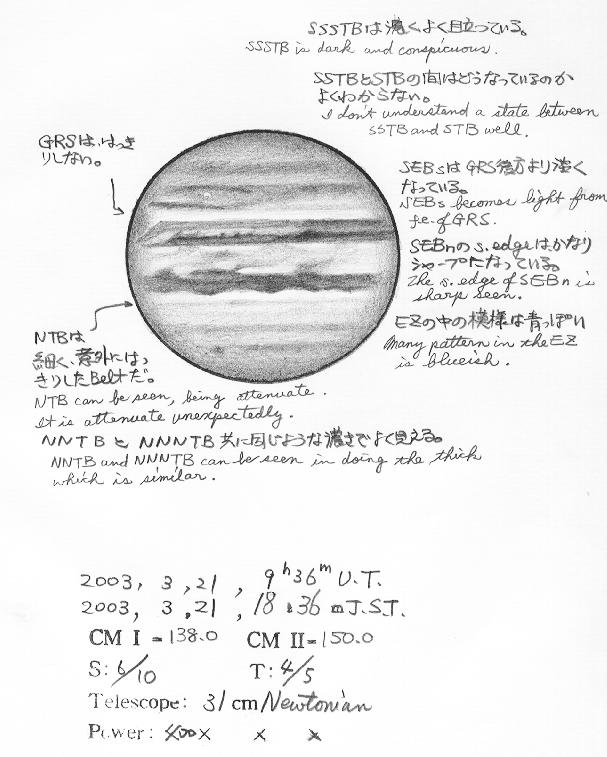 SSSTBは濃くよく目立っている。
SSSTB is dark and conspicuous.
SSTBとSTBの間はどうなっているのか
よくわからない。
I don't understand a state between
SSTB and STB well.
GRSは、はっき
りしない。
SEBsはGRS後方より淡く
なっている。
SEBs becomes light from
f.e. of GRS.
SEBnのs.edgeは、かなり
シャープになっている。
The s. edge of SEBn is
sharp seen.
EZの中の模様は青っぽい
Many pattern in the EZ
is blueish.
NTBは
細く、意外にはっ
きりしたBeltだ。
NTB can be seen, being attenuate.
It is attenuate unexpectedly.
NNTBとNNNTB共に同じような濃さでよく見える。
NNTB and NNNTB can be seen in doing the thick
which is similar.
2003, 3, 21, 9h36m U.T.
2003, 3, 21, 18h36m J.S.T.
CM I = 138.0 CM II = 150.0
S: 6/10 T: 4/5
Telescope: 31 cm/Newtonian
Power: 400× × ×